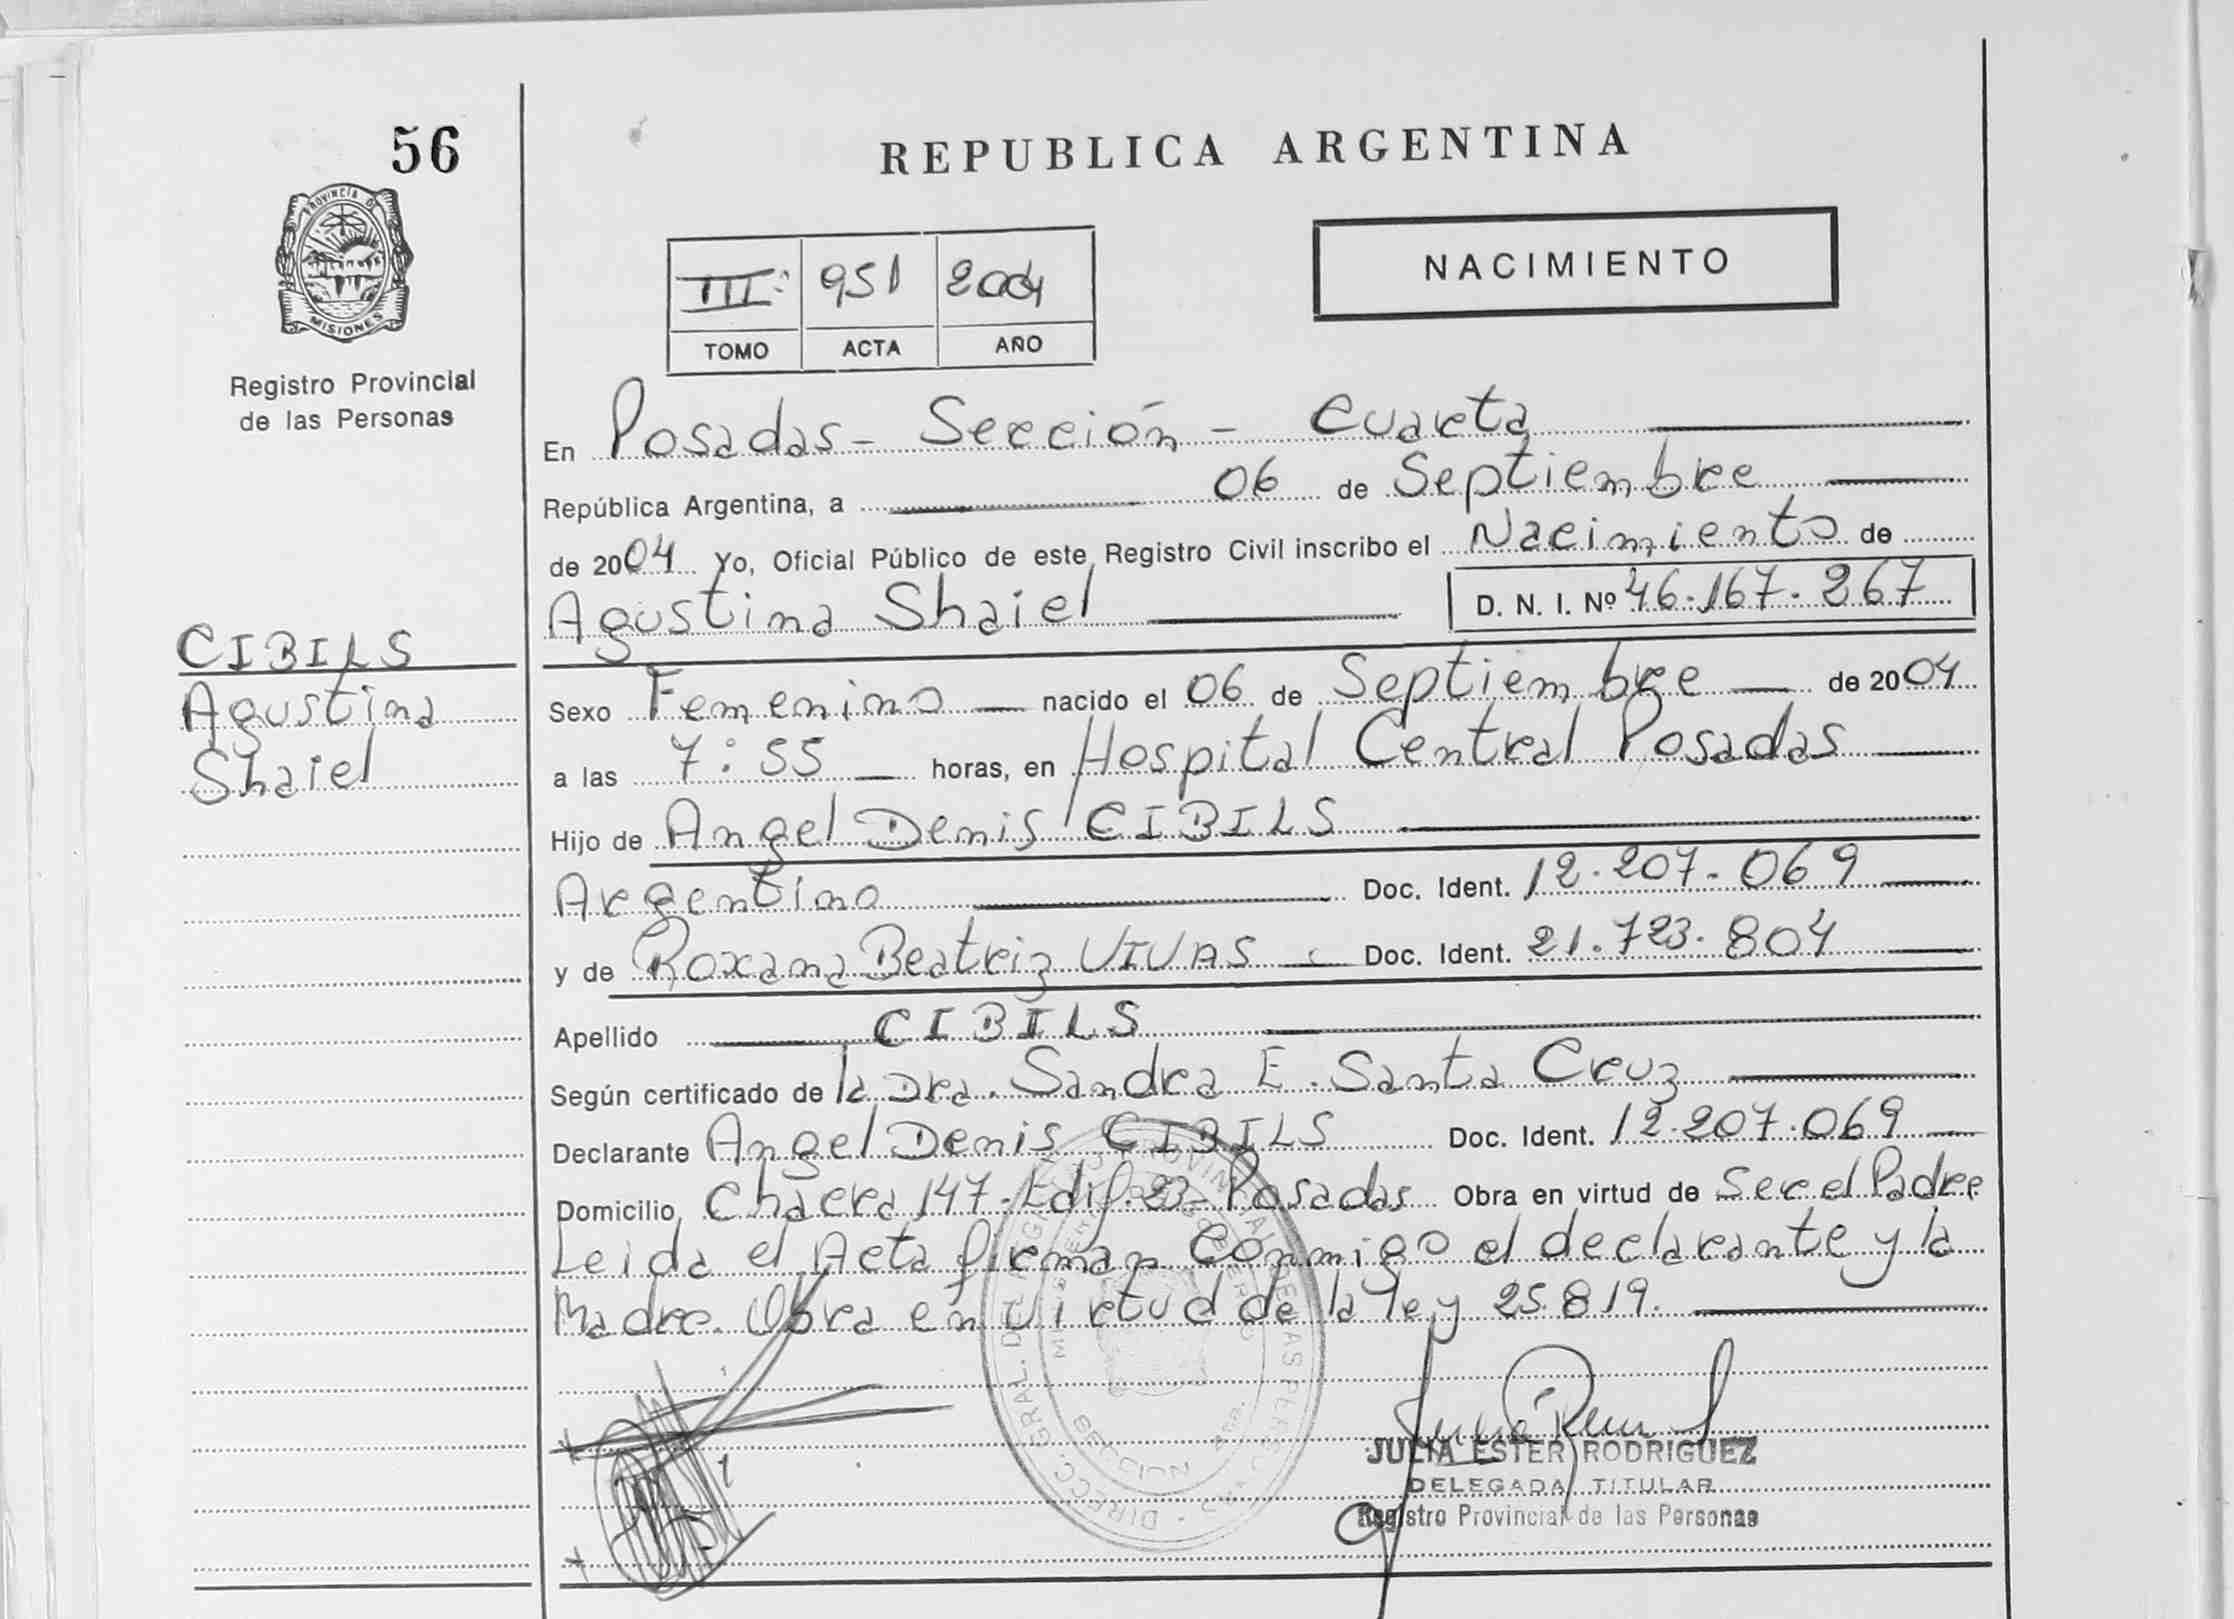 56
REPUBLICA ARGENTINA
PROVINCIA D
MISIONES
Registro Provincial
de las Personas
NACIMIENTO
III: 951 2004
TOMO ACTA AÑO
En Posadas - Sección - Cuarta
República Argentina, a 06 de Septiembre
de 2004 Yo, Oficial Público de este Registro Civil inscribo el Nacimiento de
Agustina Shaiel D. N. I. Nº 46.167.267
CIBILS
Agustina
Shaiel
Sexo Femenino nacido el 06 de Septiembre de 2004
a las 7:55 horas, en Hospital Central Posadas
Hijo de Angel Denis CIBILS
Argentino Doc. Ident. 12.207.069
y de Roxana Beatriz VIVAS Doc. Ident. 21.723.804
Apellido CIBILS
Según certificado de la Dra. Sandra E. Santa Cruz
Declarante Angel Denis CIBILS Doc. Ident. 12.207.069
Domicilio Chacra 147 - Edif. 23 - Posadas Obra en virtud de Ser el Padre
Leida el Acta firman Conmigo el declarante y la
Madre. Obra en Virtud de la ley 25.819.
JULIA ESTER RODRIGUEZ
DELEGADA TITULAR
Registro Provincial de las Personas